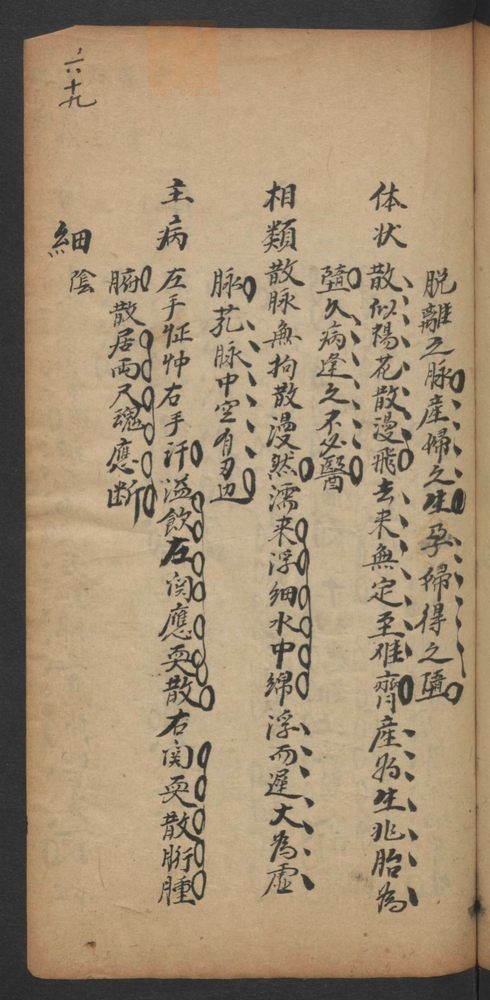 脱離之脉産婦之生孕婦得之墮
体状 散似楊花散漫飛去来無定至难齊産為生兆胎為
墮久病逢之不必醫
相類 散脉無拘散漫然濡来浮細水中綿浮而遲大為虛
脉芤脉中空有两边
主病 左手怔忡右手汗溢飲左関應耎散右関耎散胻腫
腑散居两尺魂應断
細
陰
六十九